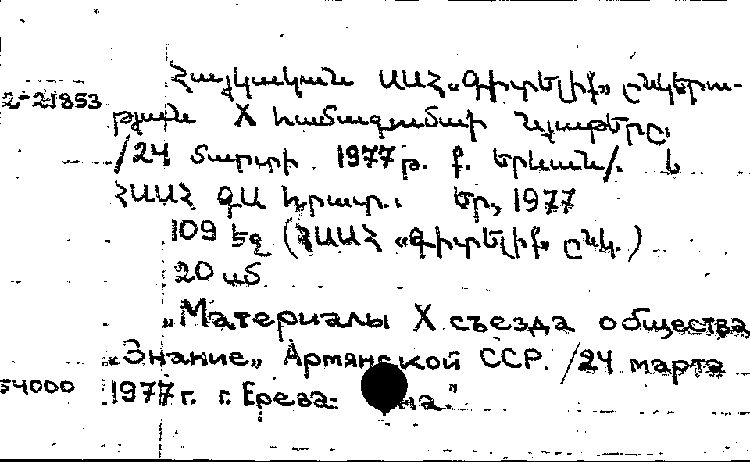 Հայկական ՍՍՀ «Գիտելիք» ընկերու-
2-21853
թյան X համագումարի նյութերը
/24 մարտի 1977թ. ք. Երևան/.
ՀՍՍՀ ԳԱ հրատ.: Եր., 1977
109 էջ (ՀՍՍՀ «Գիտելիք» ընկ.)
20 սմ
„Материалы X съезда общества
«Знание» Армянской ССР. /24 марта
54000 1977г. г. Ерева- на."